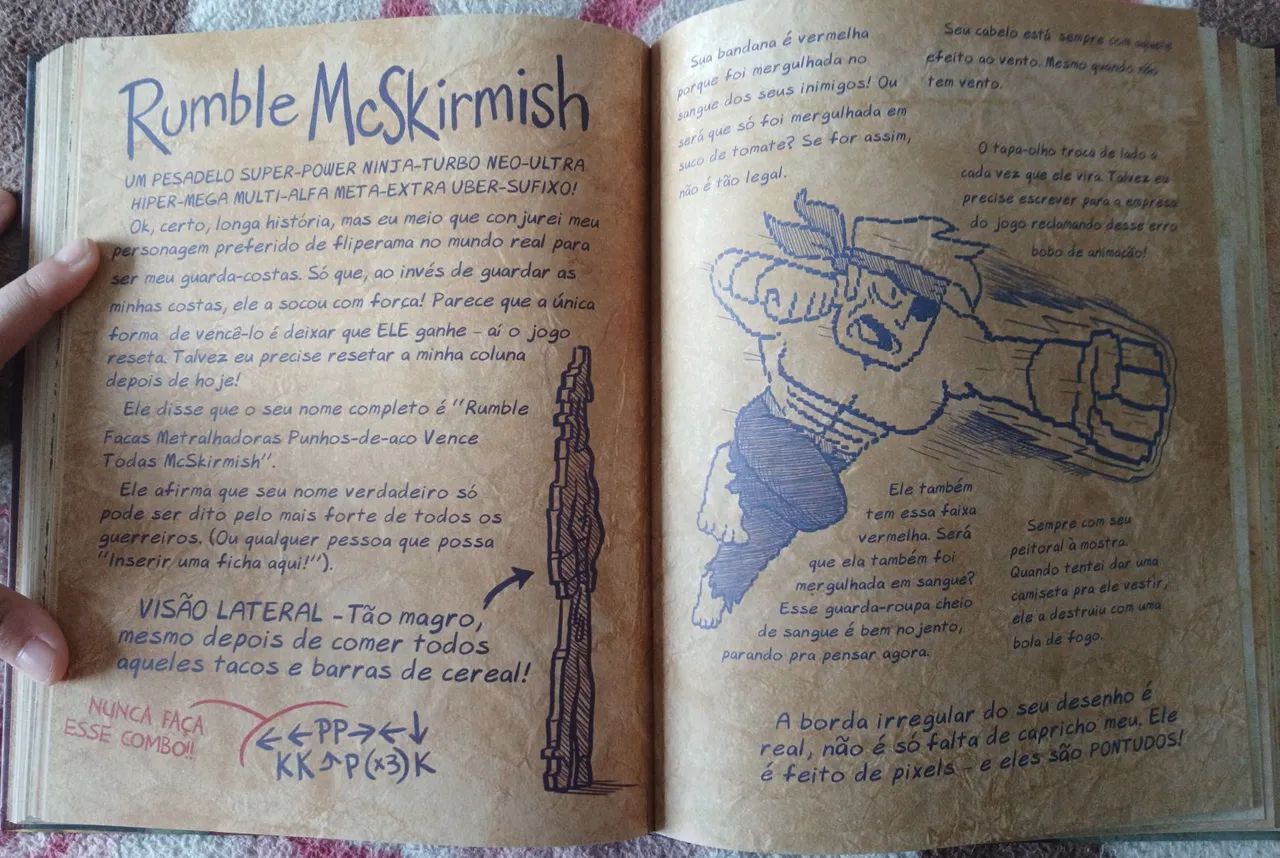 Rumble McSkirmish
UM PESADELO SUPER-POWER NINJA-TURBO NEO-ULTRA
HIPER-MEGA MULTI-ALFA META-EXTRA UBER-SUFIXO!
Ok, certo, longa história, mas eu meio que conjurei meu
personagem preferido de fliperama no mundo real para
ser meu guarda-costas. Só que, ao invés de guardar as
minhas costas, ele a socou com força! Parece que a única
forma de vencê-lo é deixar que ELE ganhe - aí o jogo
reseta. Talvez eu precise resetar a minha coluna
depois de hoje!
Ele disse que o seu nome completo é "Rumble
Facas Metralhadoras Punhos-de-aço Vence
Todas McSkirmish".
Ele afirma que seu nome verdadeiro só
pode ser dito pelo mais forte de todos os
guerreiros. (Ou qualquer pessoa que possa
"Inserir uma ficha aqui!").
VISÃO LATERAL - Tão magro,
mesmo depois de comer todos
aqueles tacos e barras de cereal!
NUNCA FAÇA
ESSE COMBO!!
←←PP→←↓
KK↗P(x3)K
Sua bandana é vermelha
porque foi mergulhada no
sangue dos seus inimigos! Ou
será que só foi mergulhada em
suco de tomate? Se for assim,
não é tão legal.
Seu cabelo está sempre com aquele
efeito ao vento. Mesmo quando não
tem vento.
O tapa-olho troca de lado a
cada vez que ele vira. Talvez eu
precise escrever para a empresa
do jogo reclamando desse erro
bobo de animação!
Ele também
tem essa faixa
vermelha. Será
que ela também foi
mergulhada em sangue?
Esse guarda-roupa cheio
de sangue é bem nojento,
parando pra pensar agora.
Sempre com seu
peitoral à mostra.
Quando tentei dar uma
camiseta pra ele vestir,
ele a destruiu com uma
bola de fogo.
A borda irregular do seu desenho é
real, não é só falta de capricho meu. Ele
é feito de pixels - e eles são PONTUDOS!